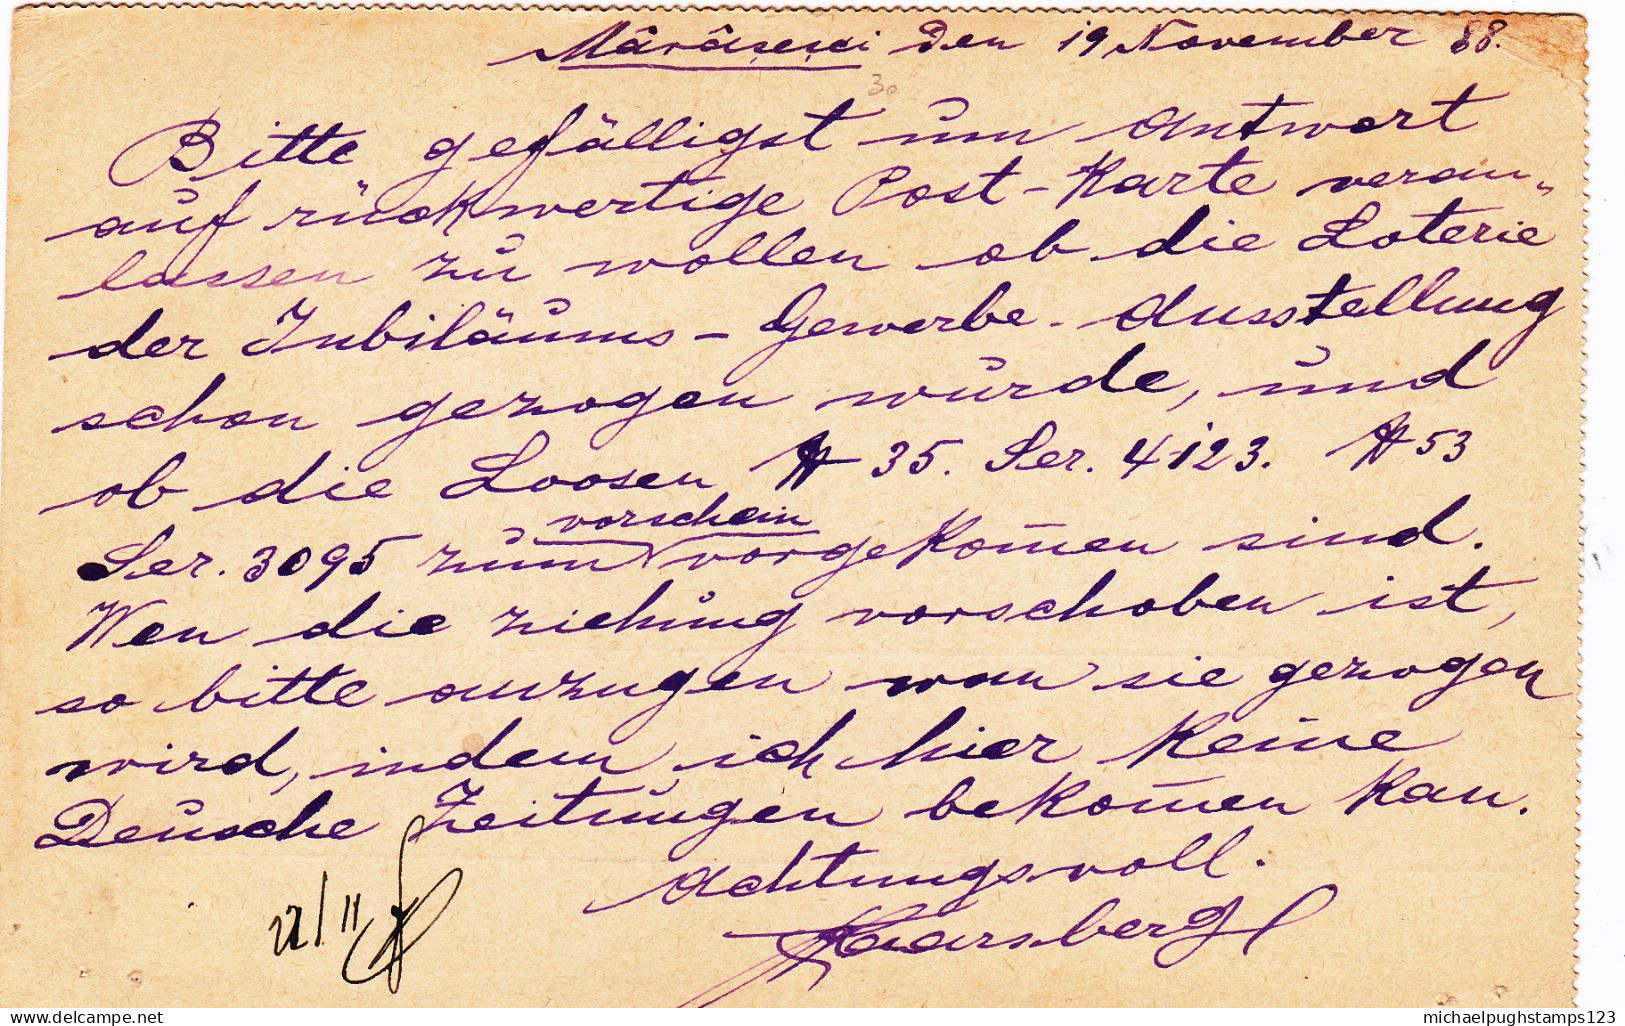 Mărăşeşti den 19 November 88.
30
Bitte gefälligst um Antwort
auf rückwertige Post-Karte veran„
lassen zu wollen ob die Loterie
der Jubiläums-Gewerbe-Ausstellung
schon gezogen wurde, und
ob die Loosen № 35. Ser. 4123. № 53
vorschein
Ser. 3095 zum vorgekom̄en sind.
Wen die ziehung vorschoben ist,
so bitte anzugen wan sie gezogen
wird, indem ich hier keine
Deusche Zeitungen bekom̄en kan.
Achtungsvoll.
22/11
michaelpughstamps123
delcampe.net